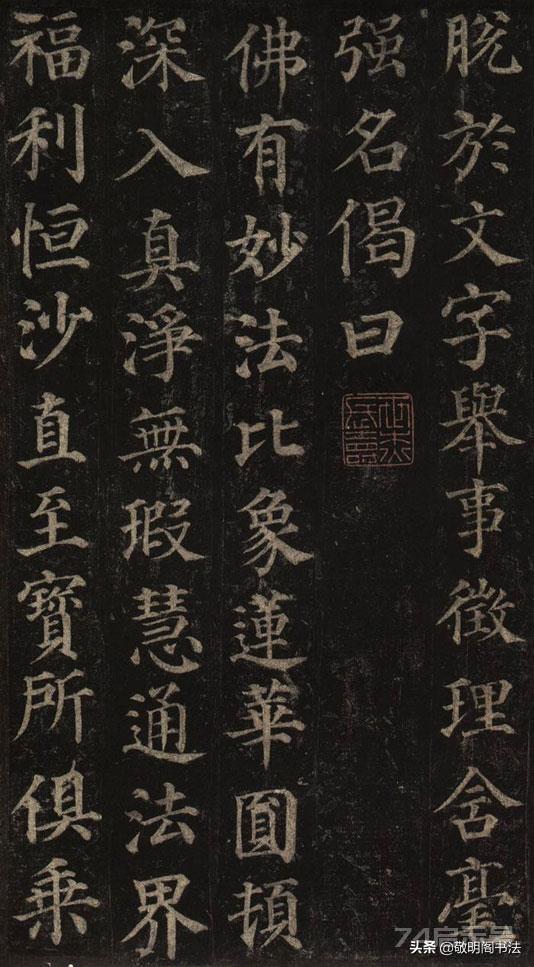 脱於文字舉事徵理含毫
强名偈曰
佛有妙法比象蓮華圓頓
深入真淨無瑕慧通法界
福利恒沙直至寶所俱乘
头条 @敬明阁书法